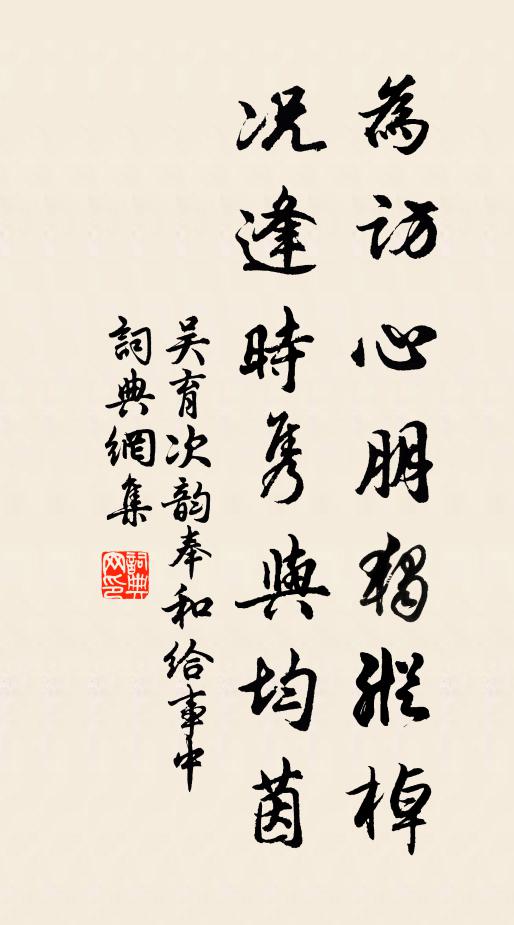 為訪心朋獨縱棹
況逢時雋與均茵
吴育次韵奉和給事中
詞典網集
詞典
网印